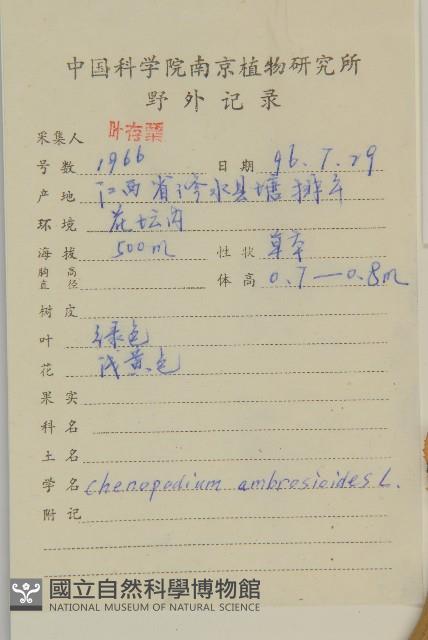 中国科学院南京植物研究所
野外记录
采集人 叶存粟
号数 1966 日期 96.7.29
产地 江西省修水县塘排
环境 花坛内
海拔 500m 性状 草本
胸高直径 体高 0.7—0.8m
树皮
叶 绿色
花 浅黄色
果实
科名
土名
学名 Chenopodium ambrosioides L.
附记
國立自然科學博物館
NATIONAL MUSEUM OF NATURAL SCIENCE